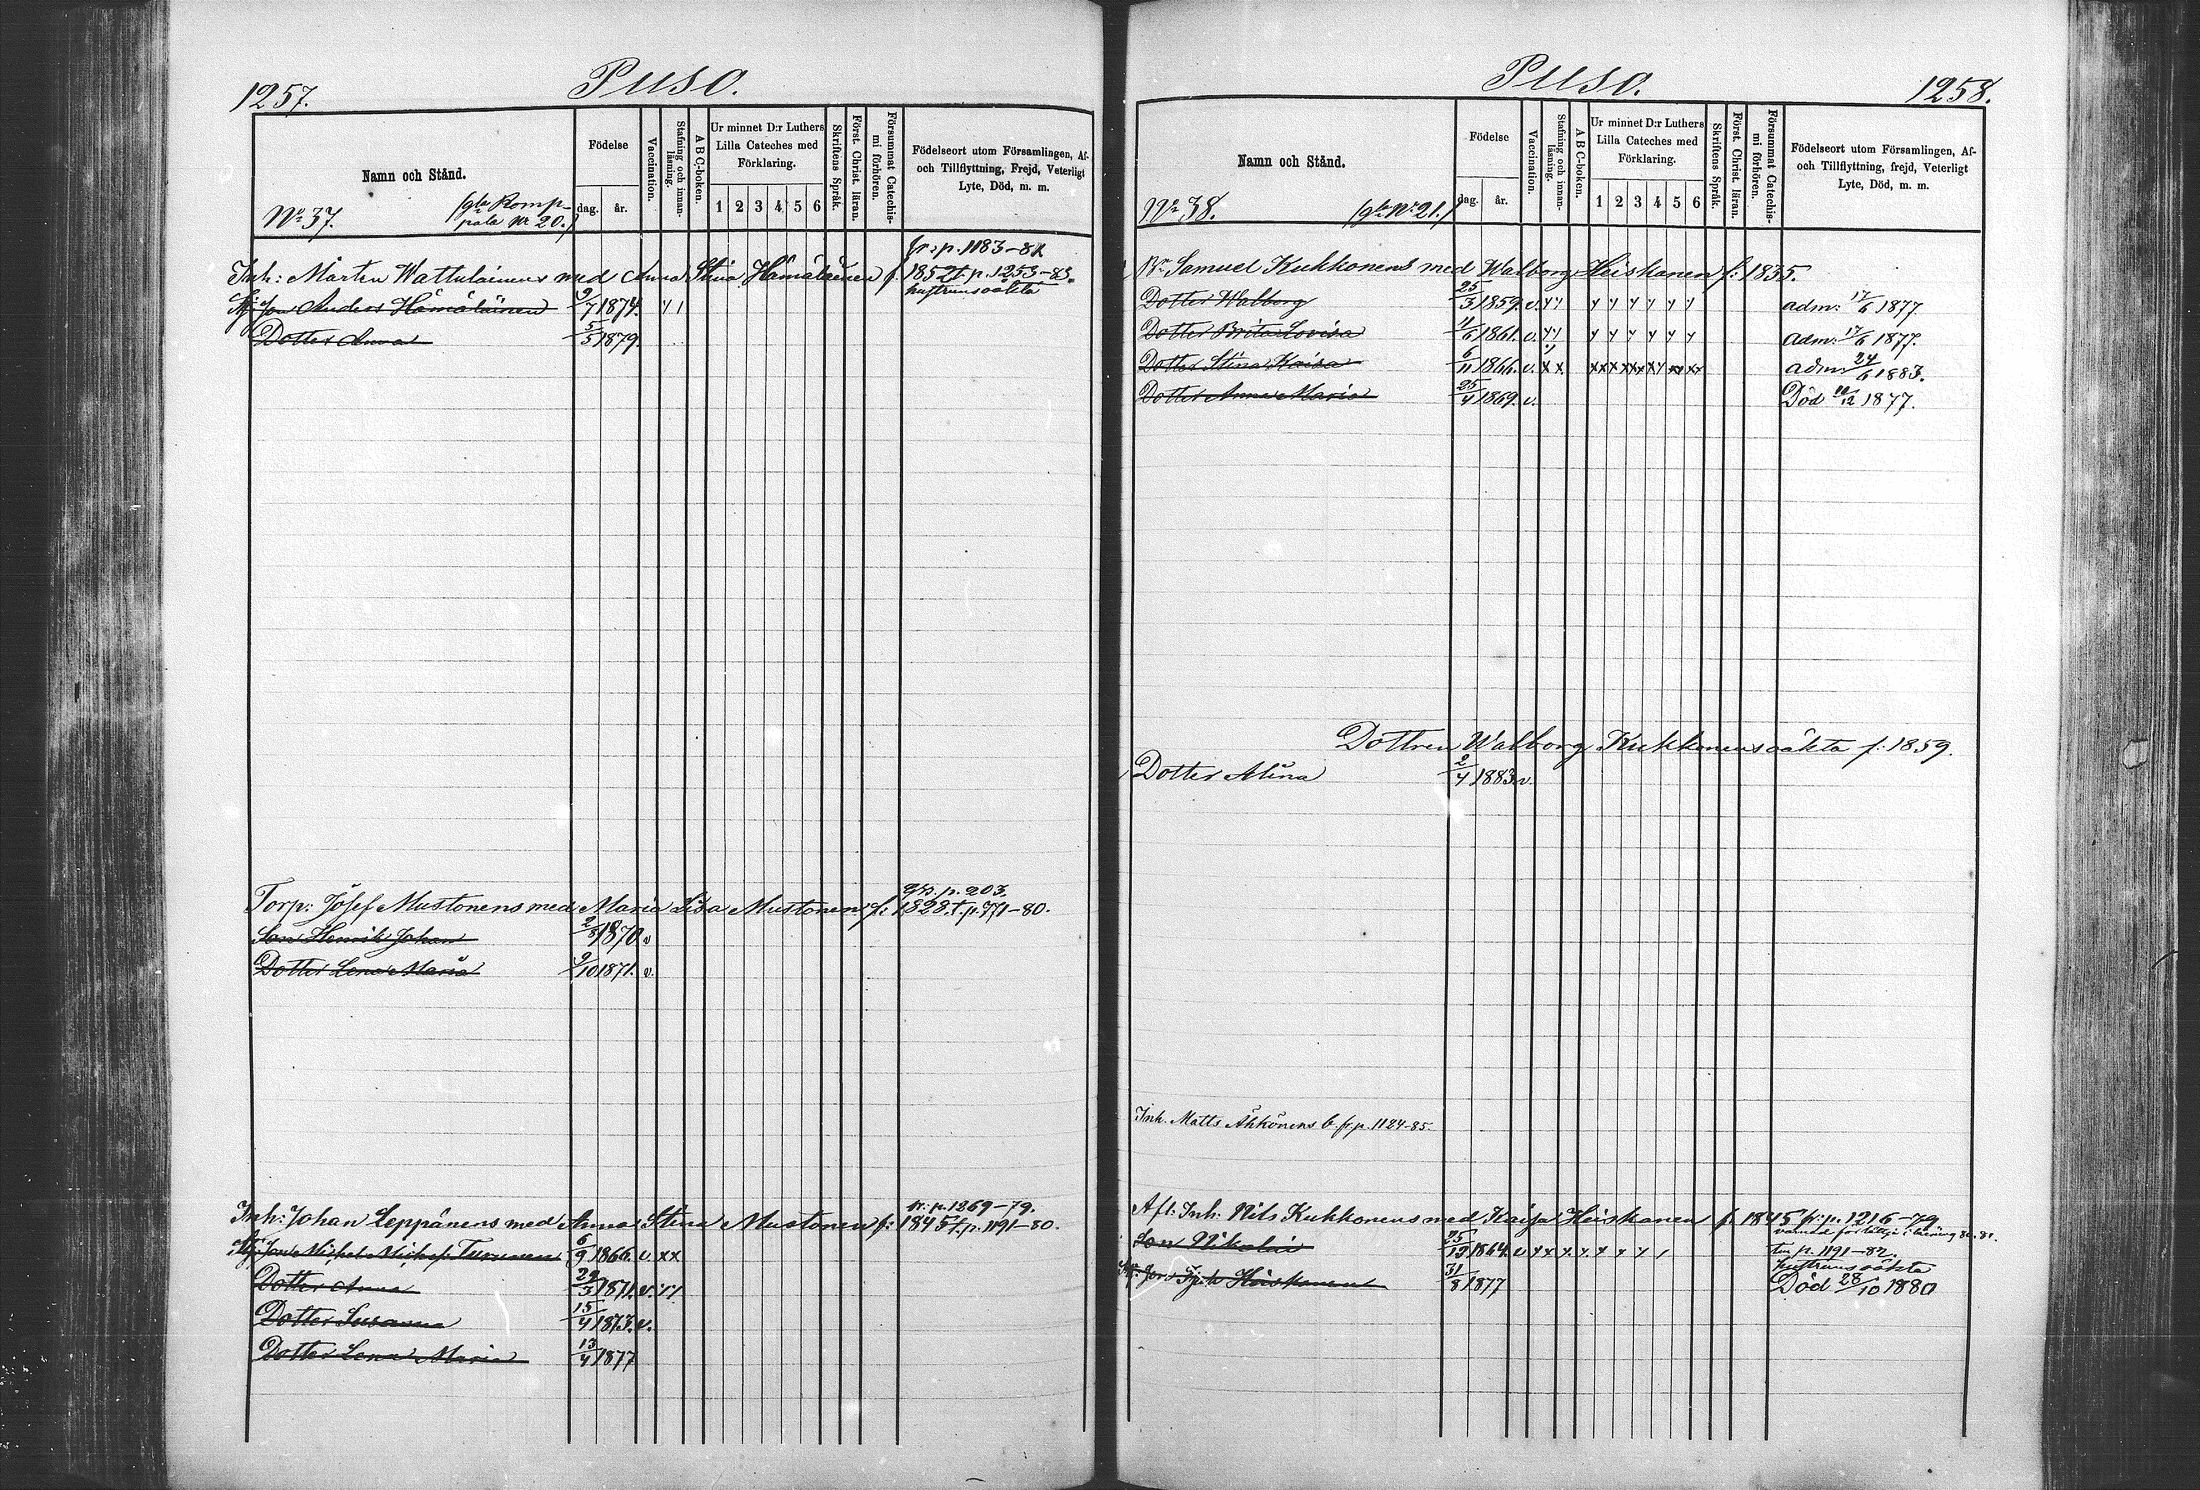 1257.
Puso.
Namn och Stånd.
Födelse
dag.
år.
Vaccination.
Stafning och innanläsning.
A B C-boken.
Ur minnet D:r Luthers
Lilla Cateches med
Förklaring.
1 2 3 4 5 6
Skriftens Språk.
Först. Christ. läran.
Försummat Catechismi förhören.
Födelseort utom Församlingen, Af-
och Tillflyttning, Frejd, Veterligt
Lyte, Död, m. m.
No 37.
pala Nr 20.)
fr. p. 1183-81
Inh: Mårten Wattulainens med Anna Stina Hämäläinen f. 1852 t. p. 1253-83.
hustruns oäkta
Son Anders Hämäläinen 9/7 1874.
Dotter Anna 5/5 1879.
p. 203.
Torp: Josef Mustonens med Maria Lisa Mustonen f: 1828. t. p. 771-80.
Son Henrik Johan 2/8 1870 v
Dotter Lena Maria 9/10 1871. v.
fr. p. 1269-79.
Inh: Johan Leppänens med Anna Stina Mustonen f: 1845 t. p. 1191-80.
Son Michel Turunen 6/9 1866. v. x x
Dotter Anna 29/3 1871. v.
Dotter Susanna 15/4 1873. v.
Dotter Lena Maria 13/4 1877
Puso.
1258.
Namn och Stånd.
Födelse
dag.
år.
Vaccination.
Stafning och innanläsning.
A B C-boken.
Ur minnet D:r Luthers
Lilla Cateches med
Förklaring.
1 2 3 4 5 6
Skriftens Språk.
Först. Christ. läran.
Försummat Catechismi förhören.
Födelseort utom Församlingen, Af-
och Tillflyttning, frejd, Veterligt
Lyte, Död, m. m.
No 38.
(gla Nr 21.)
Br Samuel Kukkonens med Walborg Heiskanen f: 1835.
Dotter Walborg 25/3 1859. v. adm: 17/6 1877
Dotter Brita Lovisa 11/6 1861. v. adm: 17/6 1877.
Dotter Stina Kaisa 6/11 1866. v. x x adm 24/6 1883.
Dotter Anna Maria 25/4 1869. v. Död 10/12 1877.
Dottren Walborg Kukkonens oäkta f: 1859.
Dotter Alina 2/4 1883 v.
Inh. Matts Ahkönens b. fr. p. 1124-85.
Afl. Inh. Nils Kukkonens med Kaisa Heiskanen f. 1845 fr. p. 1216-79.
Son Nikolai 25/12 1864. v t. p. 1191-82.
hustruns oäkta
Heiskanen 31/8 1877 Död 28/10 1880